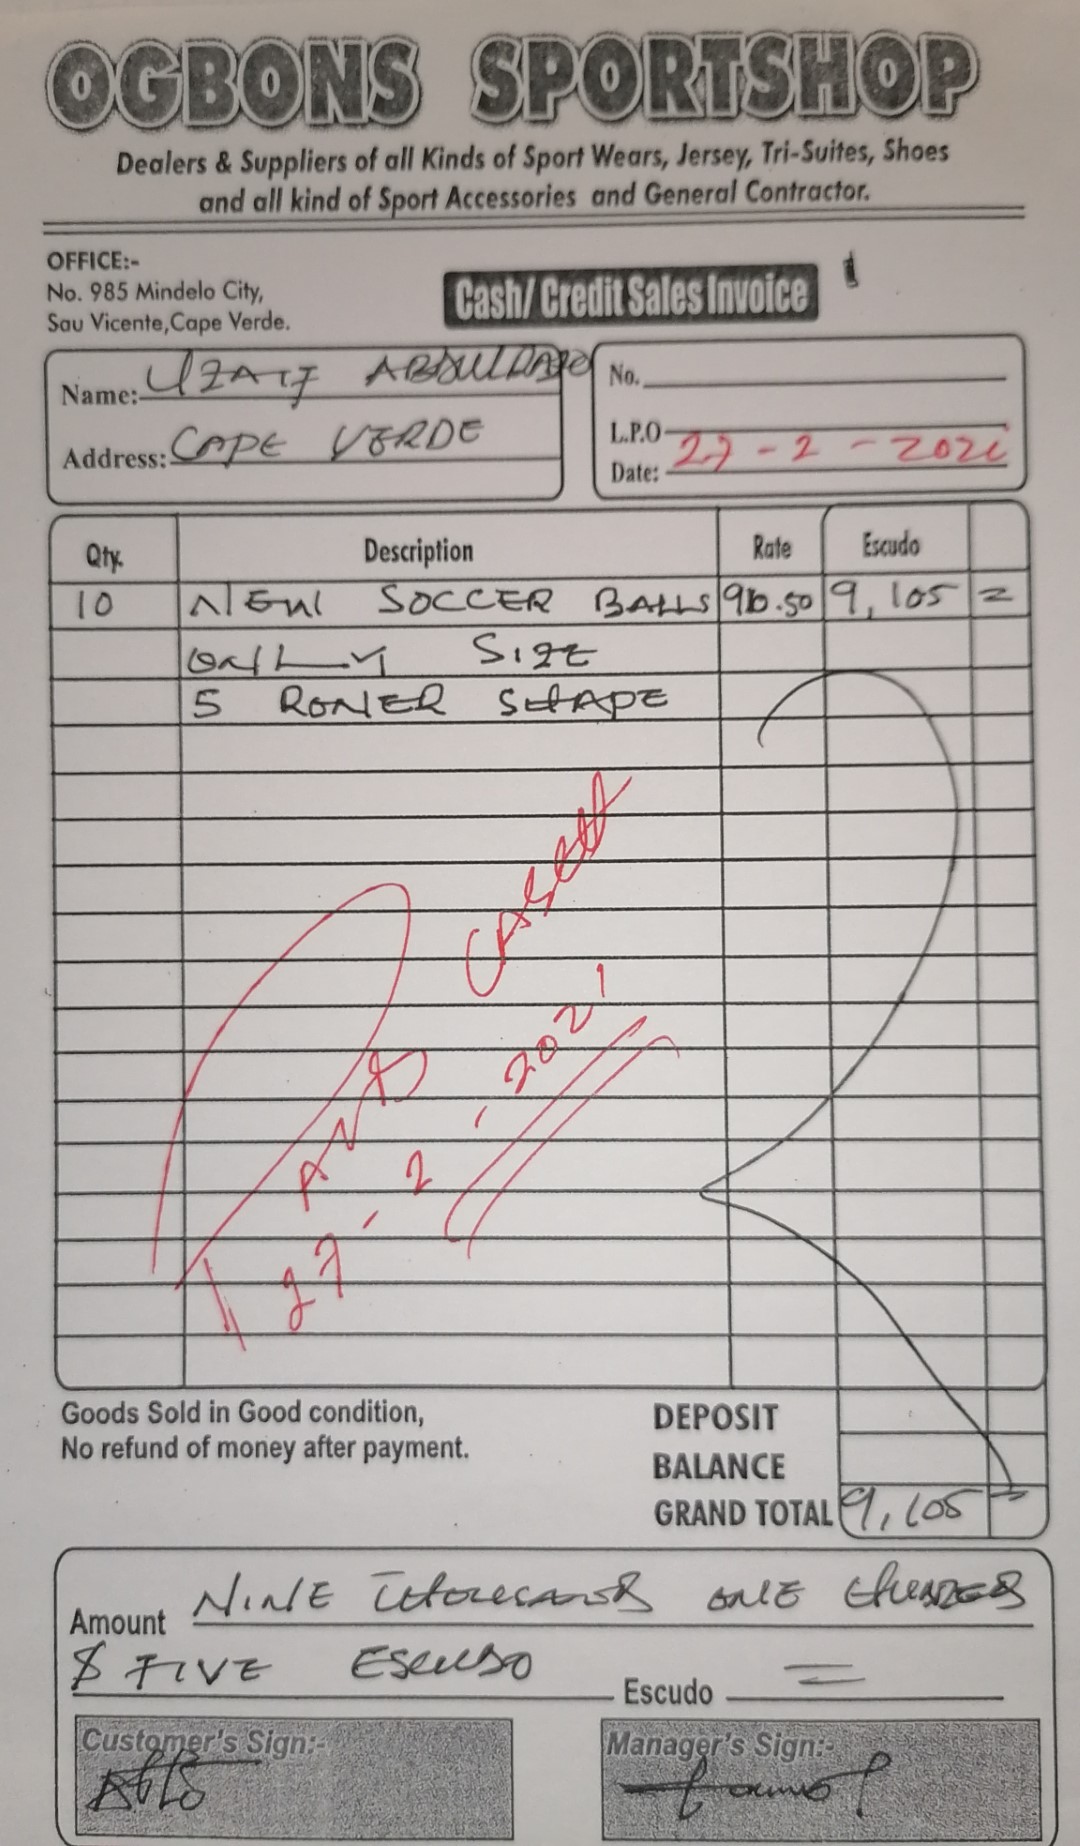 OGBONS SPORTSHOP
Dealers & Suppliers of all Kinds of Sport Wears, Jersey, Tri-Suites, Shoes
and all kind of Sport Accessories and General Contractor.
OFFICE:-
No. 985 Mindelo City,
Sau Vicente, Cape Verde.
Cash/ Credit Sales Invoice
Name:
Address: CAPE VERDE
No.
L.P.O
Date: 27-2-2021
Qty. Description Rate Escudo
10 NEW SOCCER BALLS 910.50 9,105 =
ONLY SIZE
5 RONER SHAPE
PAID CASH
27-2-2021
Goods Sold in Good condition,
No refund of money after payment.
DEPOSIT
BALANCE
GRAND TOTAL 9,105 =
Amount NINE THOUSAND ONE HUNDRED
& FIVE ESCUDO Escudo =
Customer's Sign:-
Manager's Sign:-